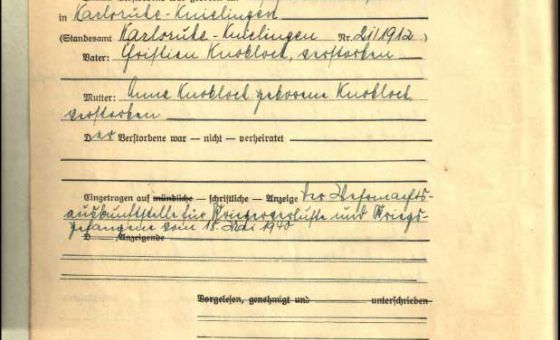 in Karlsruhe-Knielingen
(Standesamt Karlsruhe-Knielingen Nr. 21/1912 )
Vater: Christian Knobloch, verstorben
Mutter: Anna Knobloch geborene Knobloch,
verstorben
Der Verstorbene war — nicht — verheiratet
Eingetragen auf mündliche — schriftliche — Anzeige der Wehrmachts-
auskunftstelle für Kriegerverluste und Kriegs-
gefangene vom 18. Mai 1940
D Anzeigende
Vorgelesen, genehmigt und unterschrieben